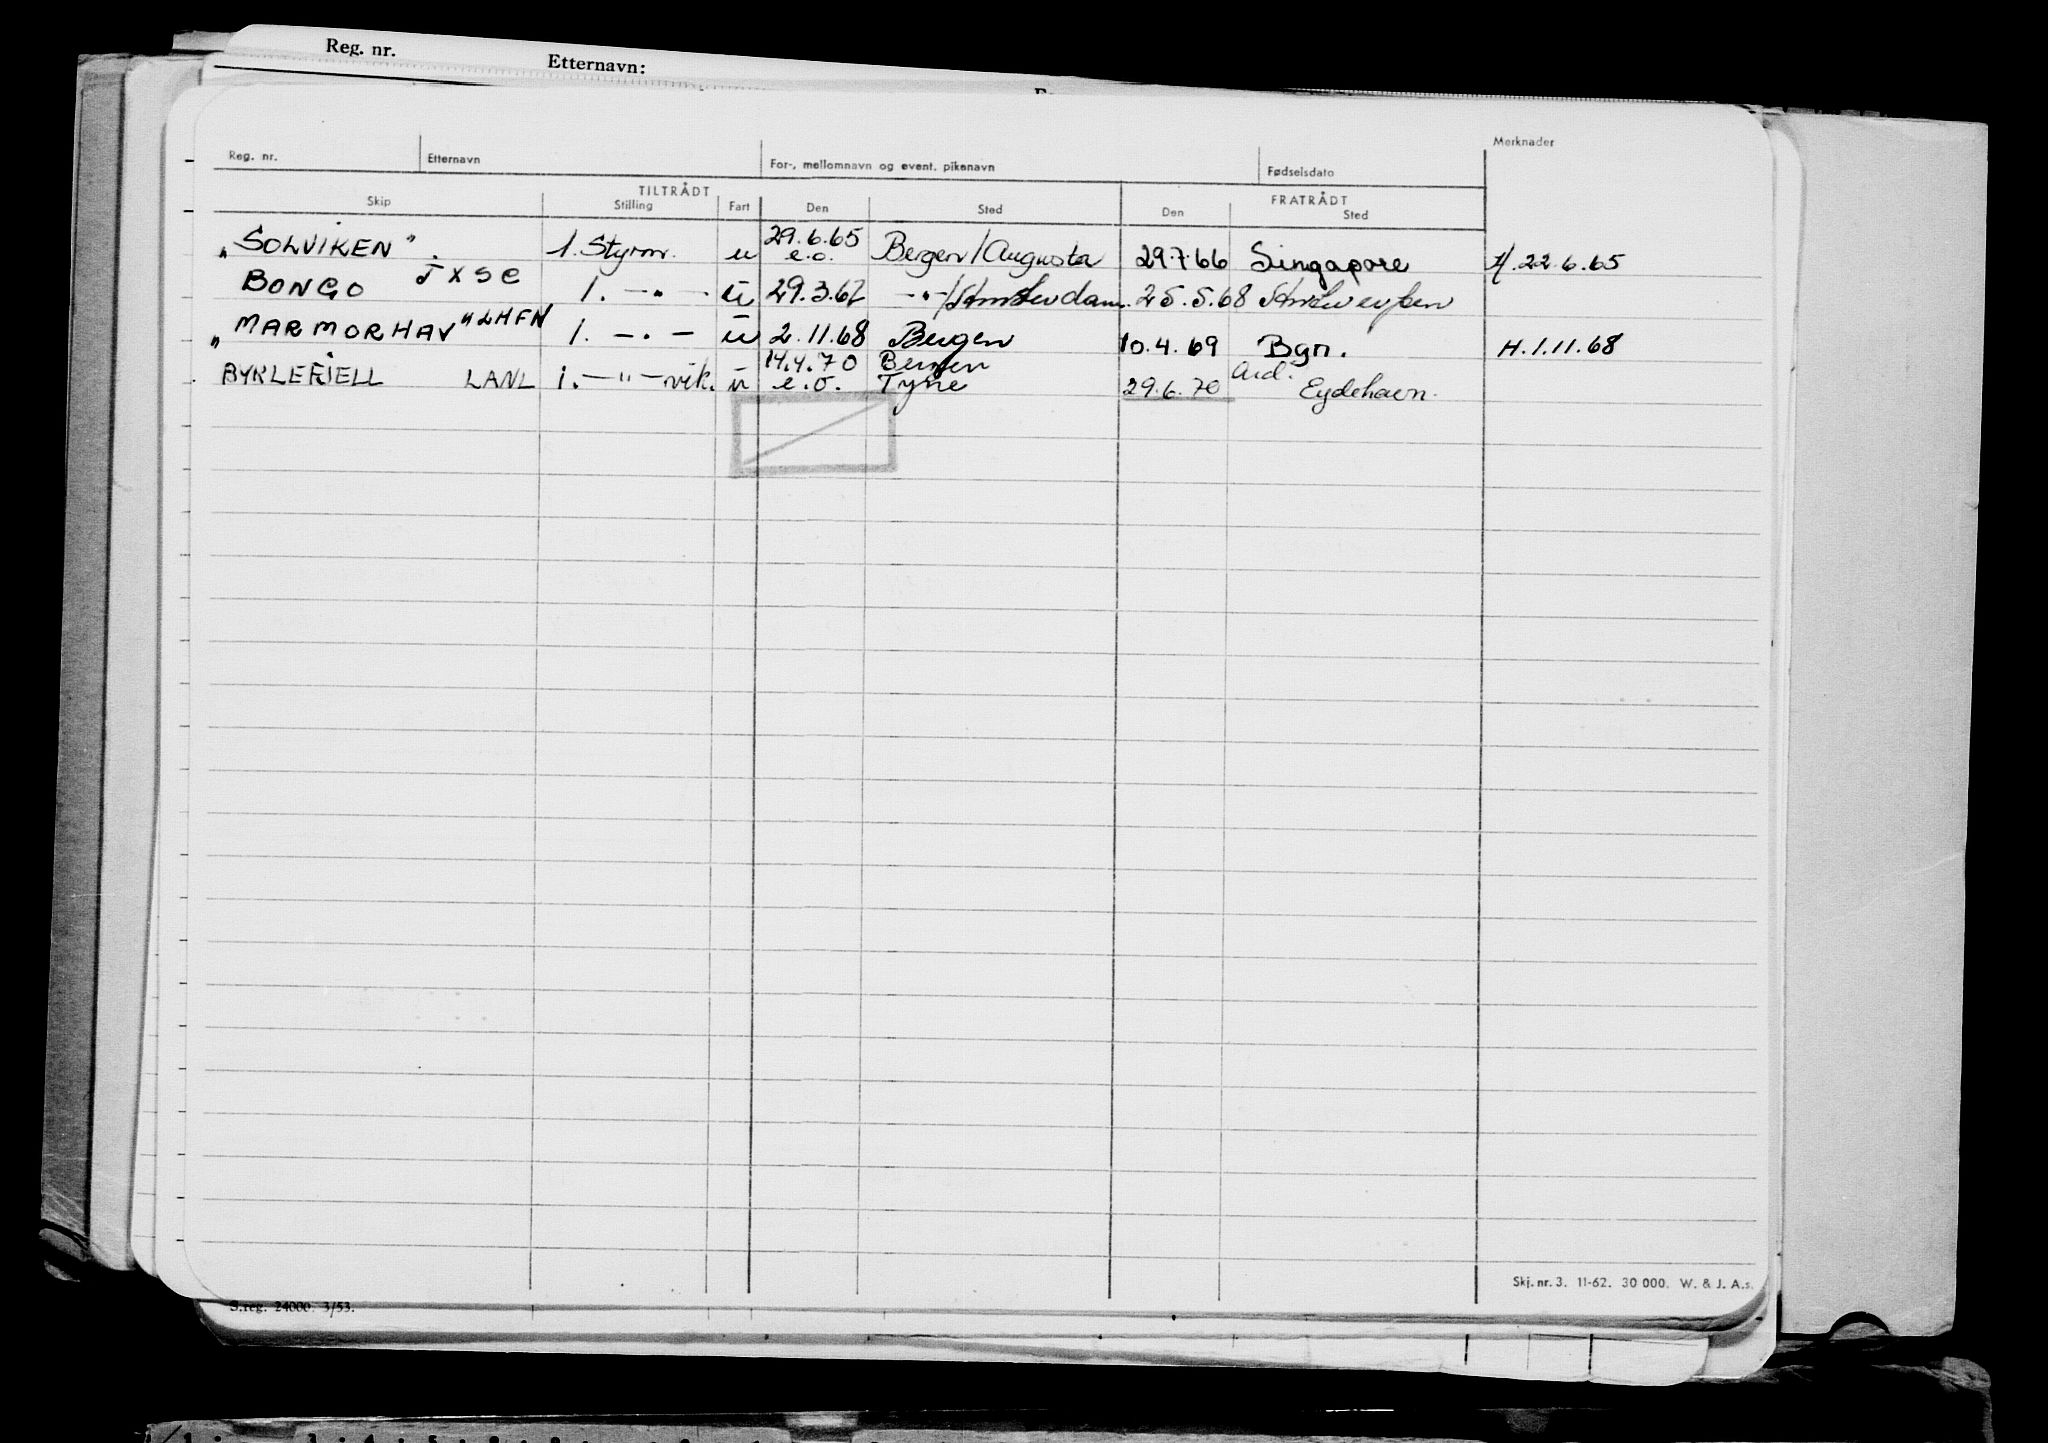 Reg. nr. Etternavn:
Merknader
Reg. nr. Etternavn For-, mellomnavn og event. pikenavn Fødselsdato
TILTRÅDT FRATRÅDT
Skip Stilling Fart Den Sted Den Sted
"SOLVIKEN". 1. Styrm. u 29.6.65 e.o. Bergen/Augusta 29.7.66 Singapore H.22.6.65
BONGO JXSC 1. -"- u 29.3.67 -"-/Amsterdam 25.5.68 Antwerpen
"MARMORHAV" LHFN 1. -"- u 2.11.68 Bergen 10.4.69 Bgn. H.1.11.68
BYKLEFJELL LANL 1. -"- vik. u 14.4.70 e.o. Bergen Tyne 29.6.70 Ard. Eydehavn.
Skj. nr. 3. 11-62. 30 000. W. & J. A.s.
S.reg. 24000. 3/53.